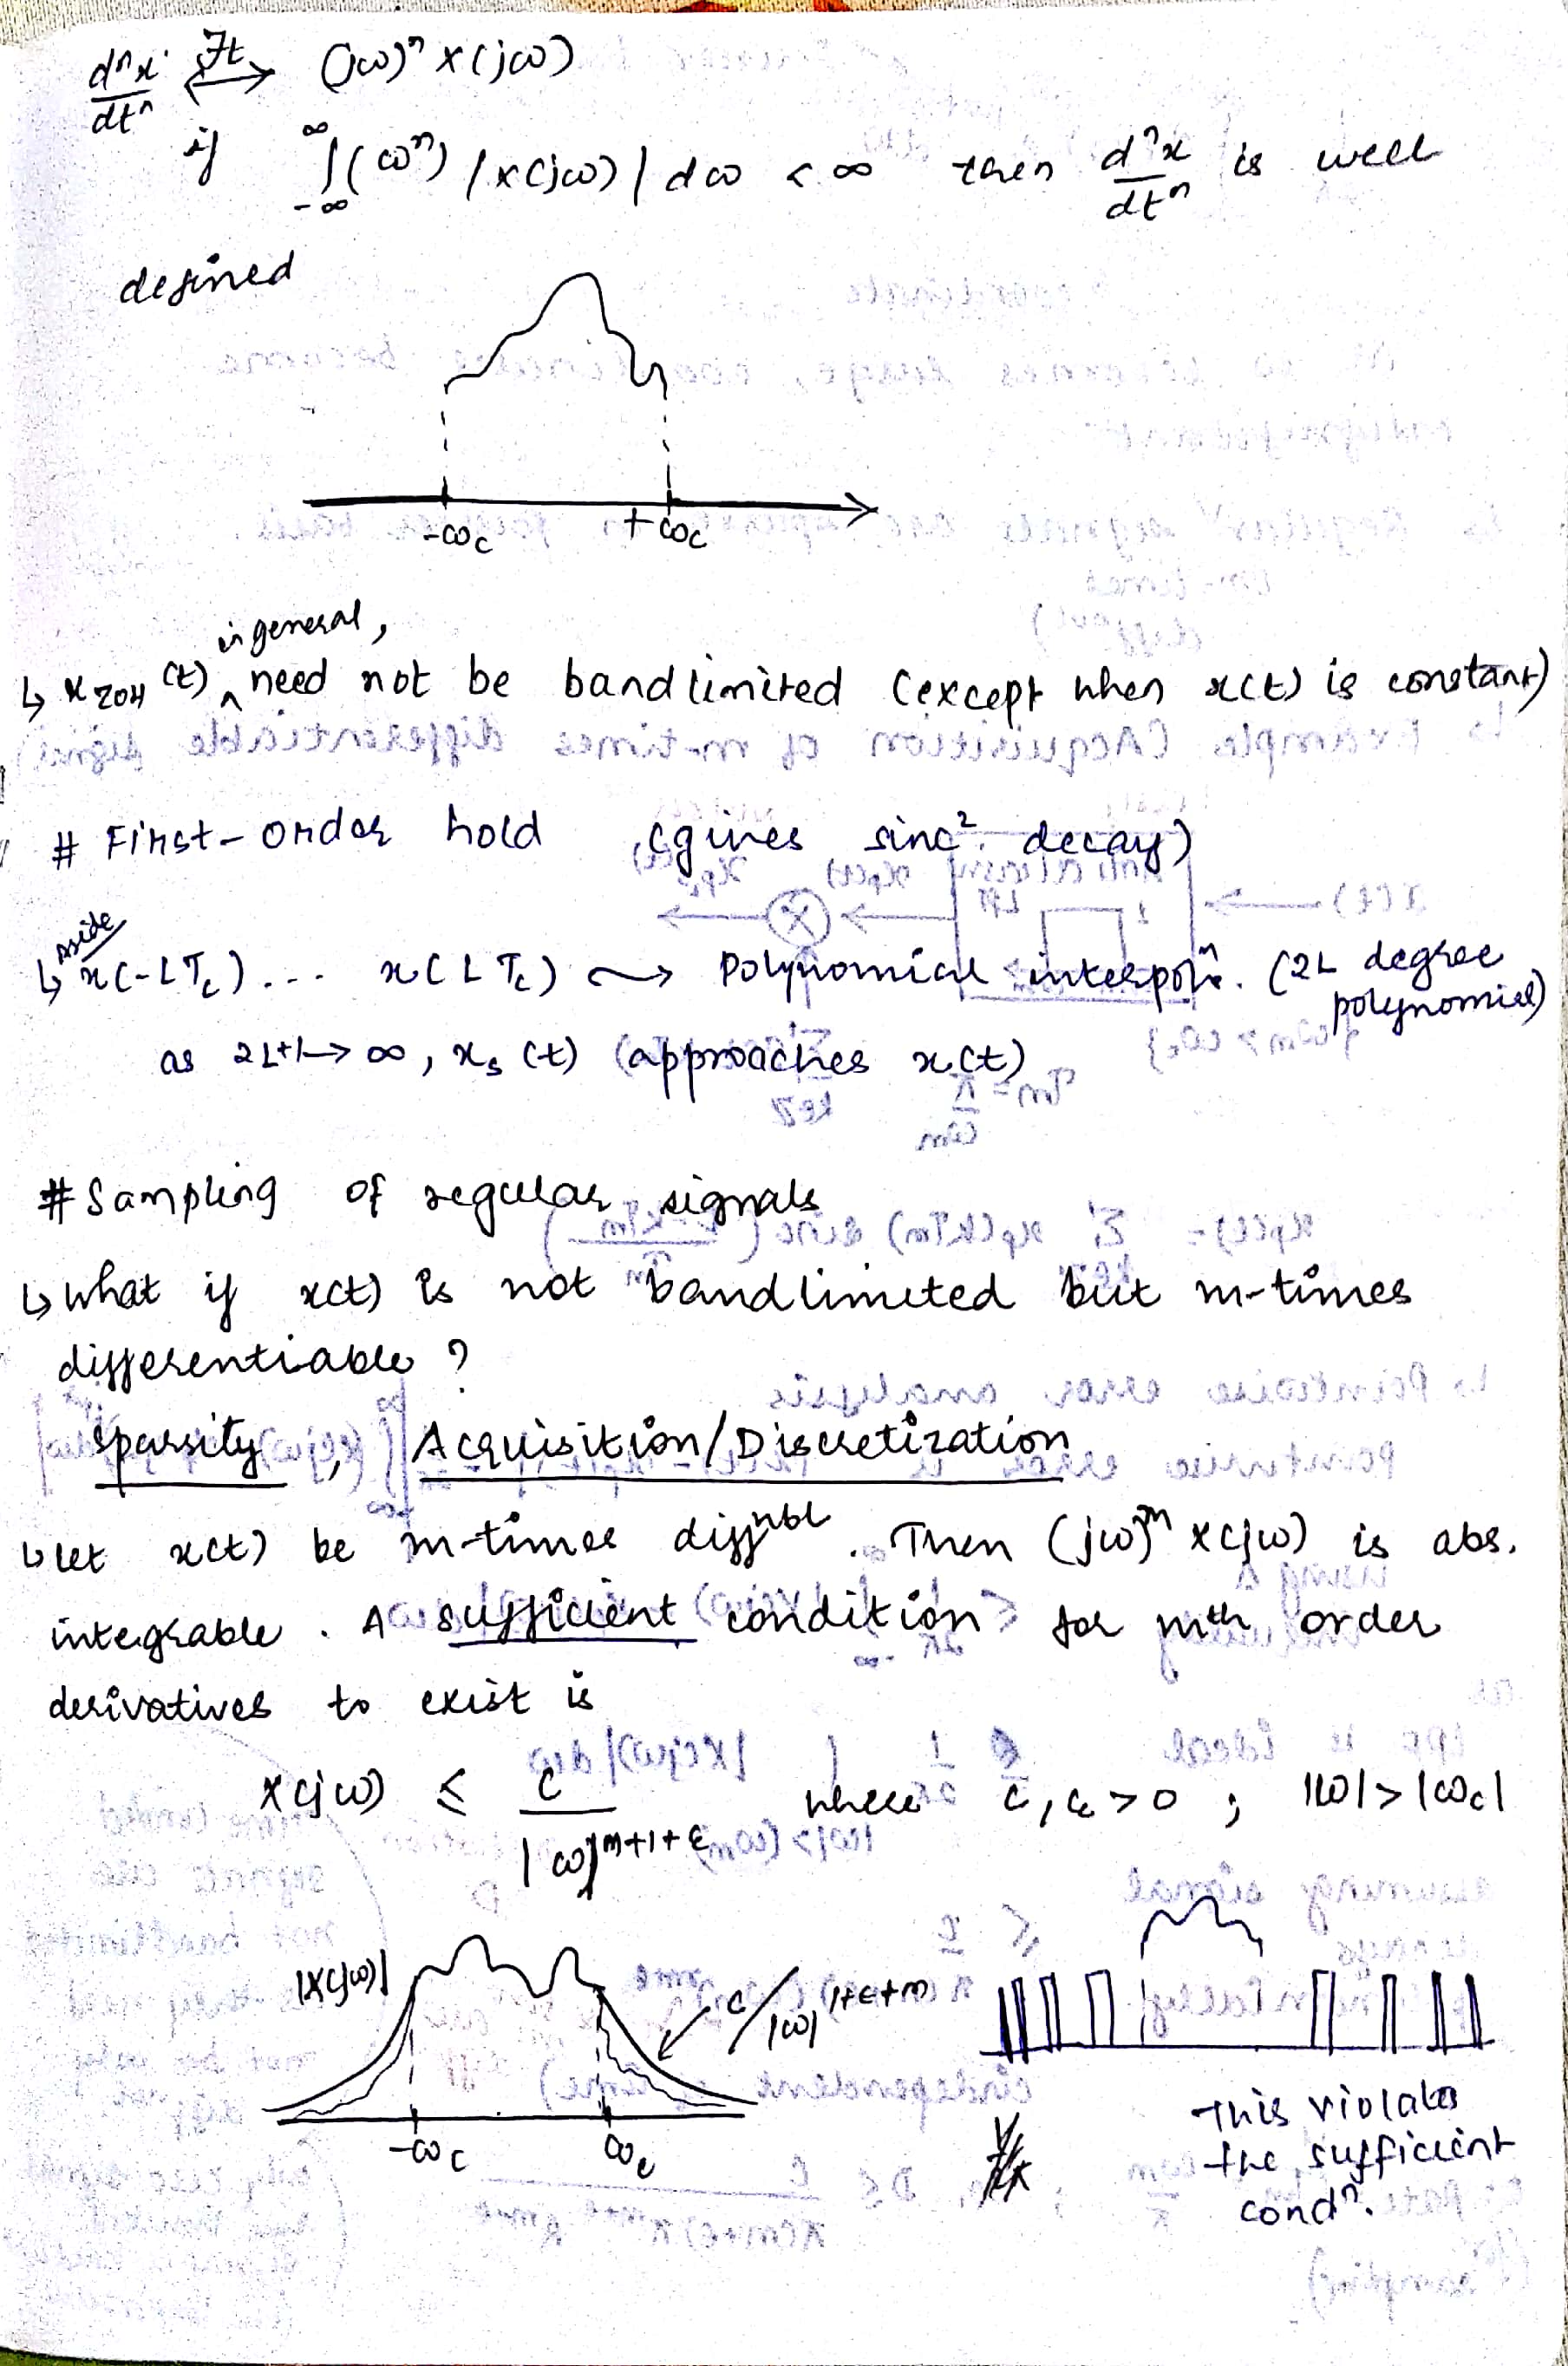 dⁿx/dtⁿ ⟷Ft (jω)ⁿ X(jω)
if ∫_{-∞}^{∞} (ωⁿ) |X(jω)| dω < ∞ then dⁿx/dtⁿ is well
defined
-ωc +ωc
in general,
↳ x_ZOH (t) ^ need not be bandlimited (except when x(t) is constant)
# First-order hold (gives sinc² decay)
Aside
↳ x(-LTc) ... x(LTc) ⤳ Polynomial interpolⁿ. (2L degree
polynomial)
as 2L+1→∞, xs(t) (approaches x(t)
# Sampling of regular signals
↳ what if x(t) is not bandlimited but m-times
differentiable ?
Sparsity, Acquisition/Discretization
↳ let x(t) be m-times diffnbl. Then (jω)ᵐ X(jω) is abs.
integrable. A sufficient condition for mth order
derivatives to exist is
X(jω) ≤ C/|ω|^{m+1+ε} where C, ε > 0 ; |ω| > |ωc|
|X(jω)|
C/|ω|^{1+ε+m}
-ωc ωc
This violates
the sufficient
condⁿ.